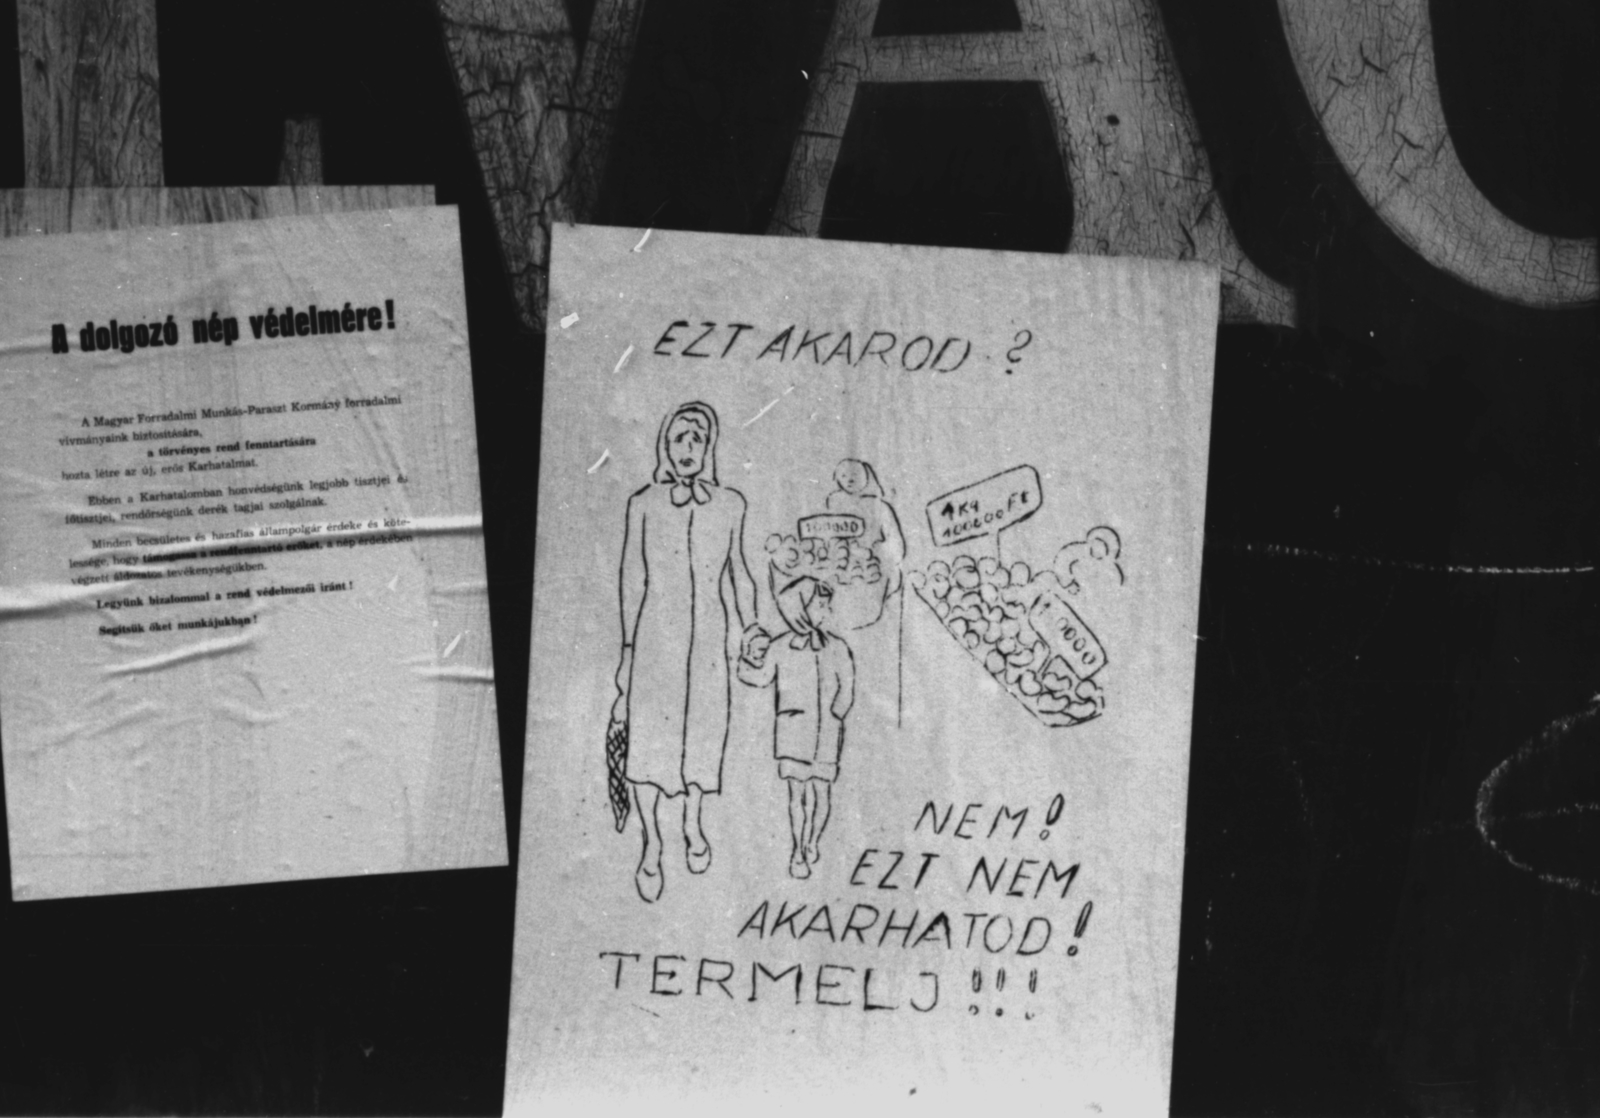 VAC
A dolgozó nép védelmére!
A Magyar Forradalmi Munkás-Paraszt Kormány forradalmi
vivmányaink biztosítására,
a törvényes rend fenntartására
hozta létre az új, erős Karhatalmat.
Ebben a Karhatalomban honvédségünk legjobb tisztjei és
főtisztjei, rendőrségünk derék tagjai szolgálnak.
Minden becsületes és hazafias állampolgár érdeke és köte-
lessége, hogy támogassa a rendfenntartó erőket, a nép érdekében
végzett áldozatos tevékenységükben.
Legyünk bizalommal a rend védelmezői iránt!
Segitsük őket munkájukban!
EZT AKAROD?
100000
1 Kg
100000 Ft
0000
NEM!
EZT NEM
AKARHATOD!
TERMELJ!!!